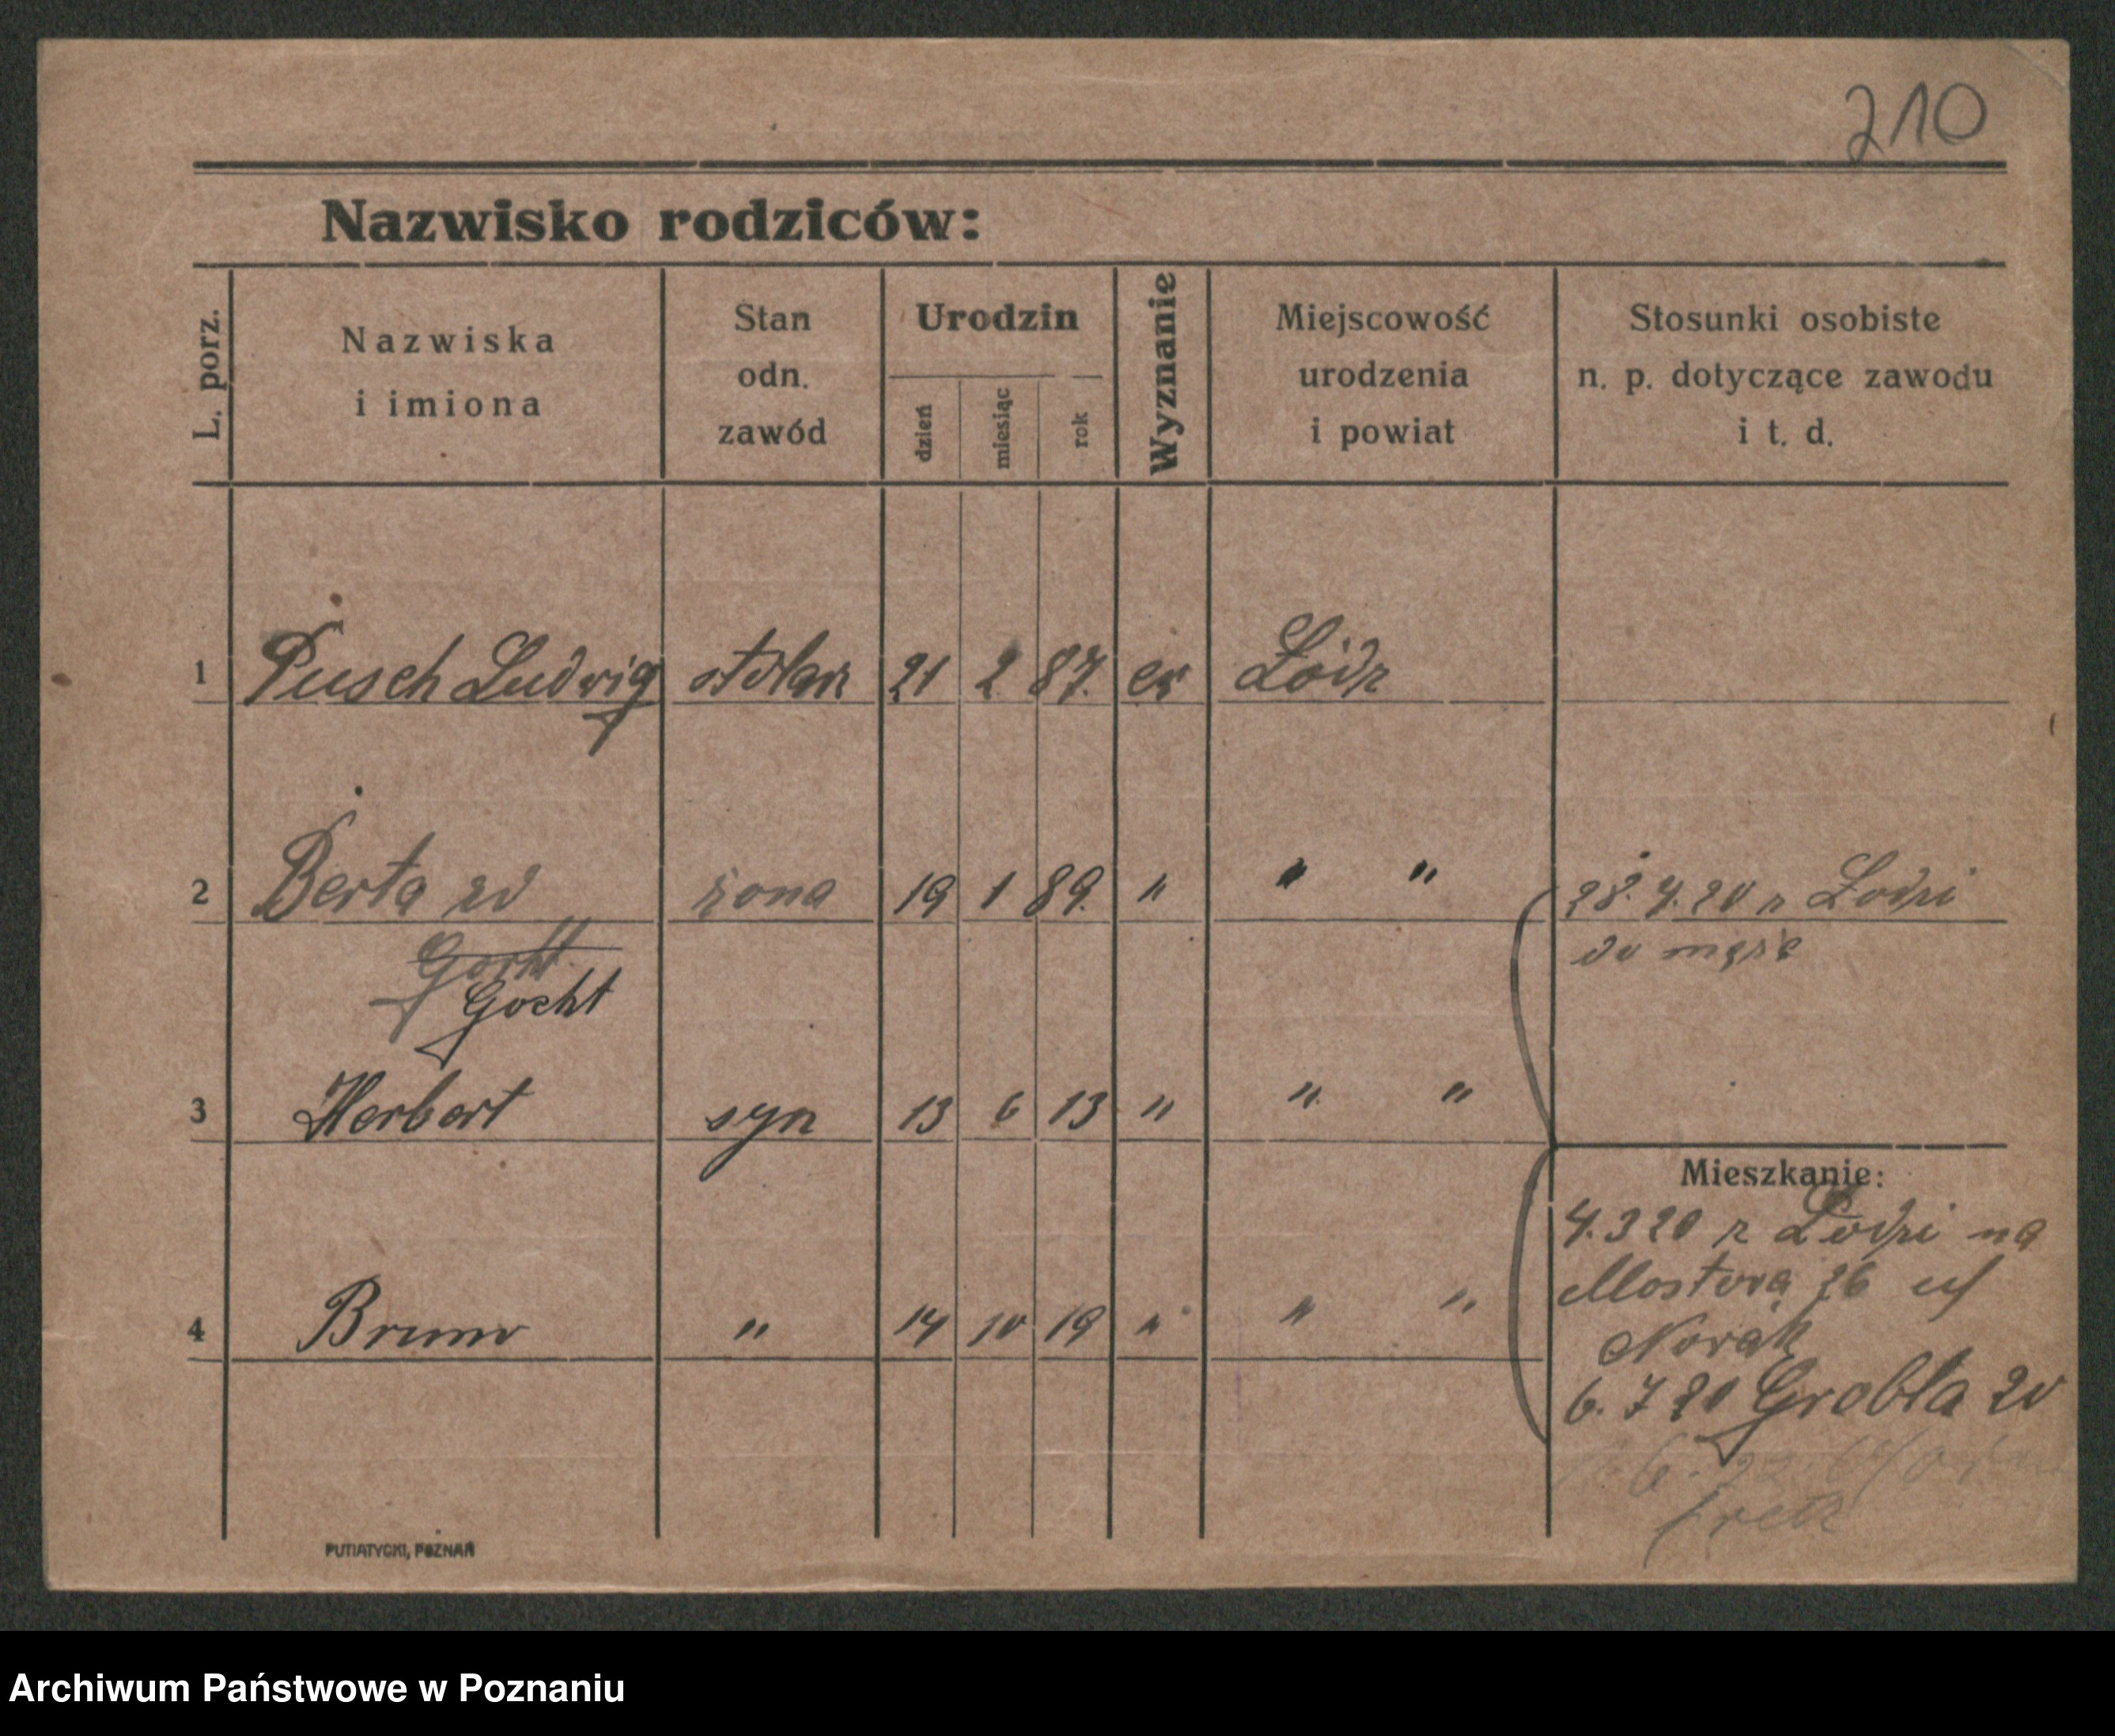 210
Nazwisko rodziców:
L. porz.
Nazwiska
i imiona
Stan
odn.
zawód
Urodzin
dzień
miesiąc
rok
Wyznanie
Miejscowość
urodzenia
i powiat
Stosunki osobiste
n. p. dotyczące zawodu
i t. d.
1 Pusch Ludwig stolarz 21 2 87. ew Łódz
2 Berta zd żona 19 1 89. " " "
28.7.20 z Łodzi
do męża
Gocht
Gocht
3 Herbert syn 13 6 13 " " "
Mieszkanie:
4.3 20 z Łodzi na
Mostowa 26 u/
Nowak
4 Bruno " 14 10 19 " " "
6. 7 20 Grobla 20
PUTIATYCKI, POZNAŃ
Archiwum Państwowe w Poznaniu